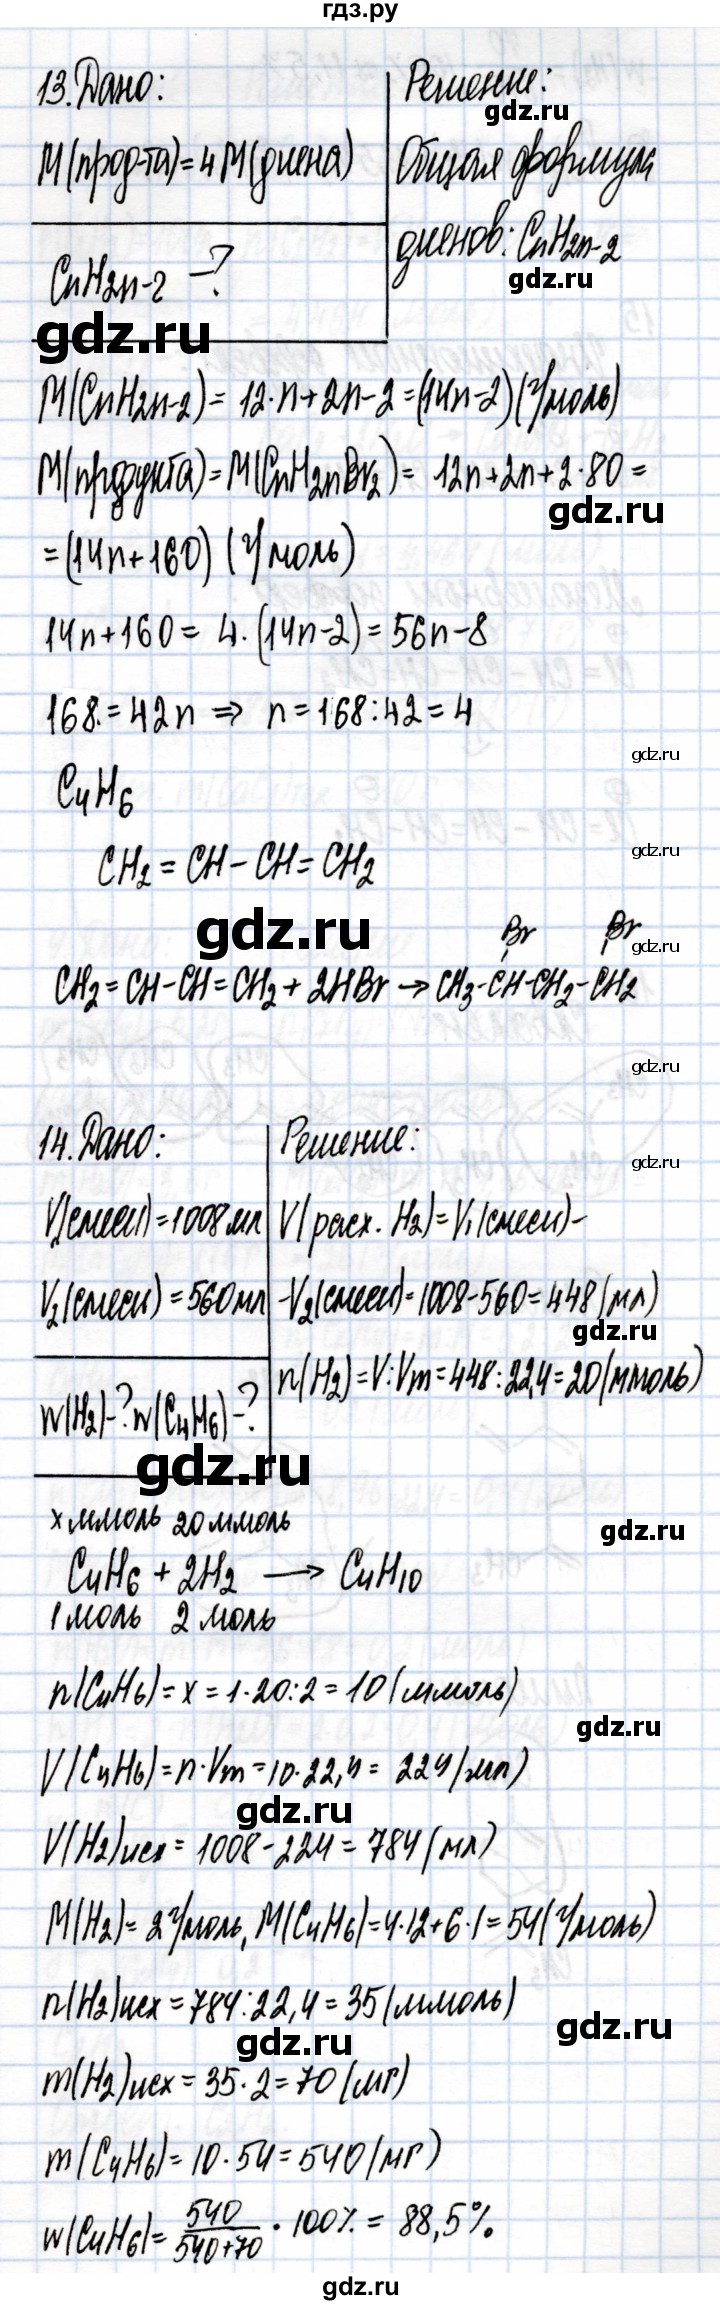 гдз.ру
13. Дано:
M(прод-та)=4M(диена)
CnH2n-2 -?
Решение:
gdz.ru
Общая формула
диенов: CnH2n-2
gdz.ru
gdz.ru
M(CnH2n-2)= 12·n+2n-2=(14n-2)(г/моль)
M(продукта)=M(CnH2nBr2)= 12n+2n+2·80=
gdz.ru
=(14n+160) (г/моль)
14n+160= 4·(14n-2)=56n-8
168=42n ⇒ n=168:42=4
gdz.ru
C4H6
CH2=CH-CH=CH2
gdz.ru
gdz.ru
Br Br
gdz.ru
CH2=CH-CH=CH2+2HBr→CH3-CH-CH2-CH2
gdz.ru
14. Дано:
V1(смеси)=1008мл
V2(смеси)=560мл
w(H2)-? w(C4H6)-?
Решение:
gdz.ru
V(расх. H2)=V1(смеси)-
-V2(смеси)=1008-560=448(мл)
gdz.ru
n(H2)=V:Vm=448:22,4=20(ммоль)
gdz.ru
x ммоль 20 ммоль
gdz.ru
C4H6 + 2H2 → C4H10
1 моль 2 моль
n(C4H6)=x=1·20:2=10(ммоль)
gdz.ru
V(C4H6)=n·Vm=10·22,4= 224(мл)
gdz.ru
V(H2)исх=1008-224=784(мл)
M(H2)=2г/моль, M(C4H6)=4·12+6·1=54(г/моль)
n(H2)исх=784:22,4=35(ммоль)
gdz.ru
gdz.ru
m(H2)исх=35·2=70(мг)
m(C4H6)=10·54=540(мг)
w(C4H6)=540/(540+70)·100%=88,5%
gdz.ru